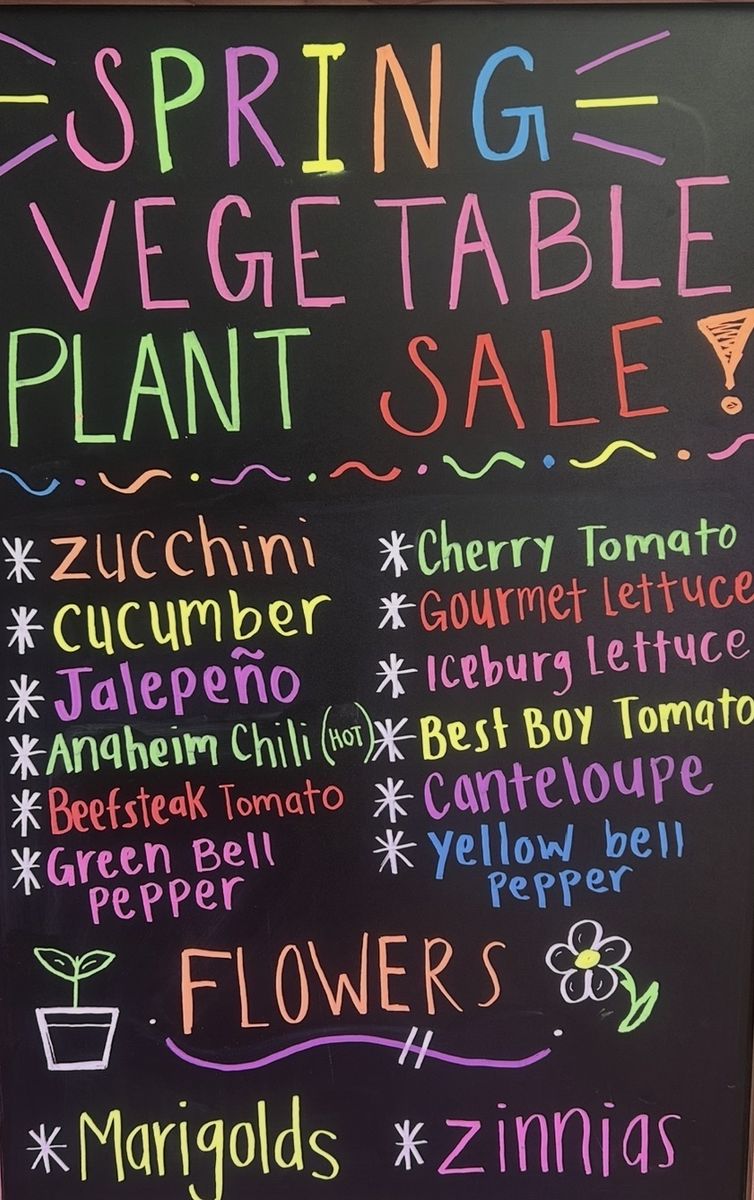 SPRING
VEGETABLE
PLANT SALE!
* Zucchini
* Cucumber
* Jalepeño
* Anaheim Chili (HOT)
* Beefsteak Tomato
* Green Bell
Pepper
* Cherry Tomato
* Gourmet Lettuce
* Iceburg Lettuce
* Best Boy Tomato
* Canteloupe
* Yellow bell
Pepper
FLOWERS
* Marigolds
* Zinnias